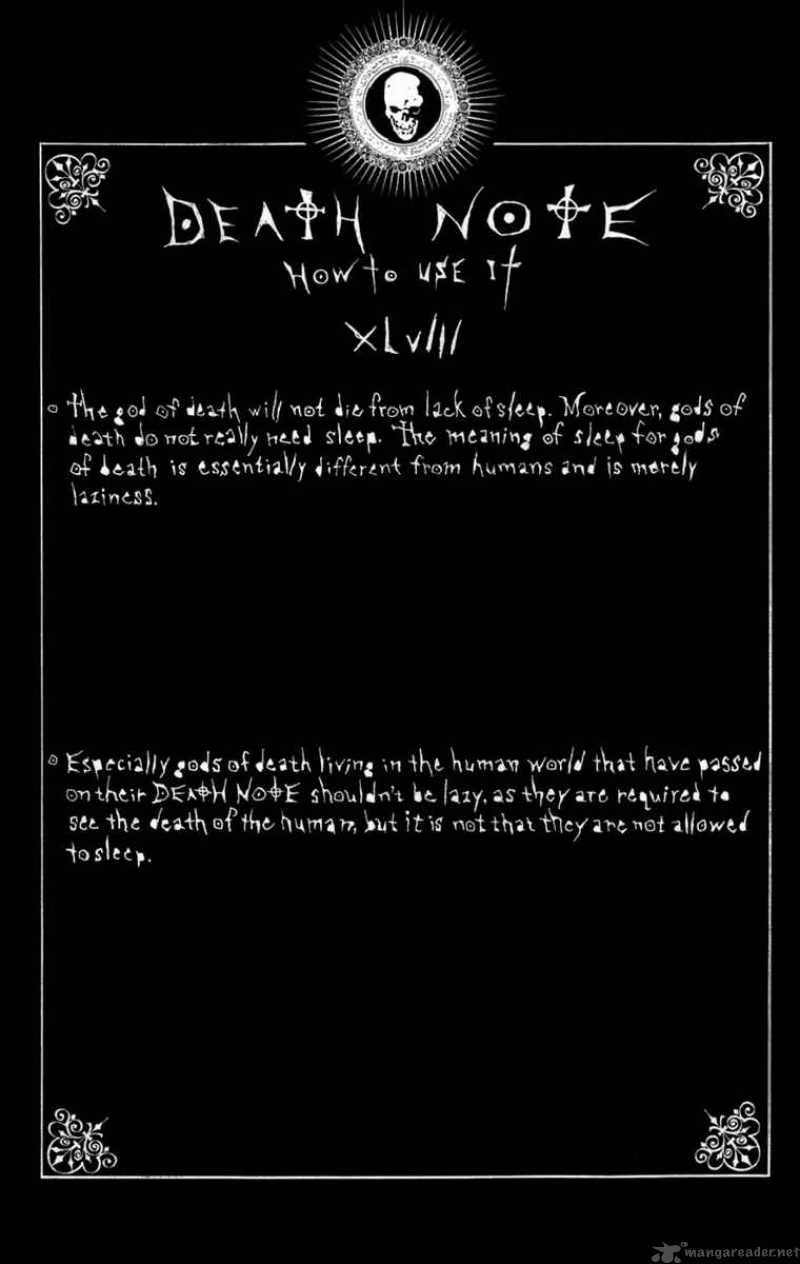 DEATH NOTE
HOW TO USE IT
XLVIII
The god of death will not die from lack of sleep. Moreover, gods of
death do not really need sleep. The meaning of sleep for gods
of death is essentially different from humans and is merely
laziness.
Especially gods of death living in the human world that have passed
on their DEATH NOTE shouldn't be lazy, as they are required to
see the death of the human, but it is not that they are not allowed
to sleep.
mangareader.net